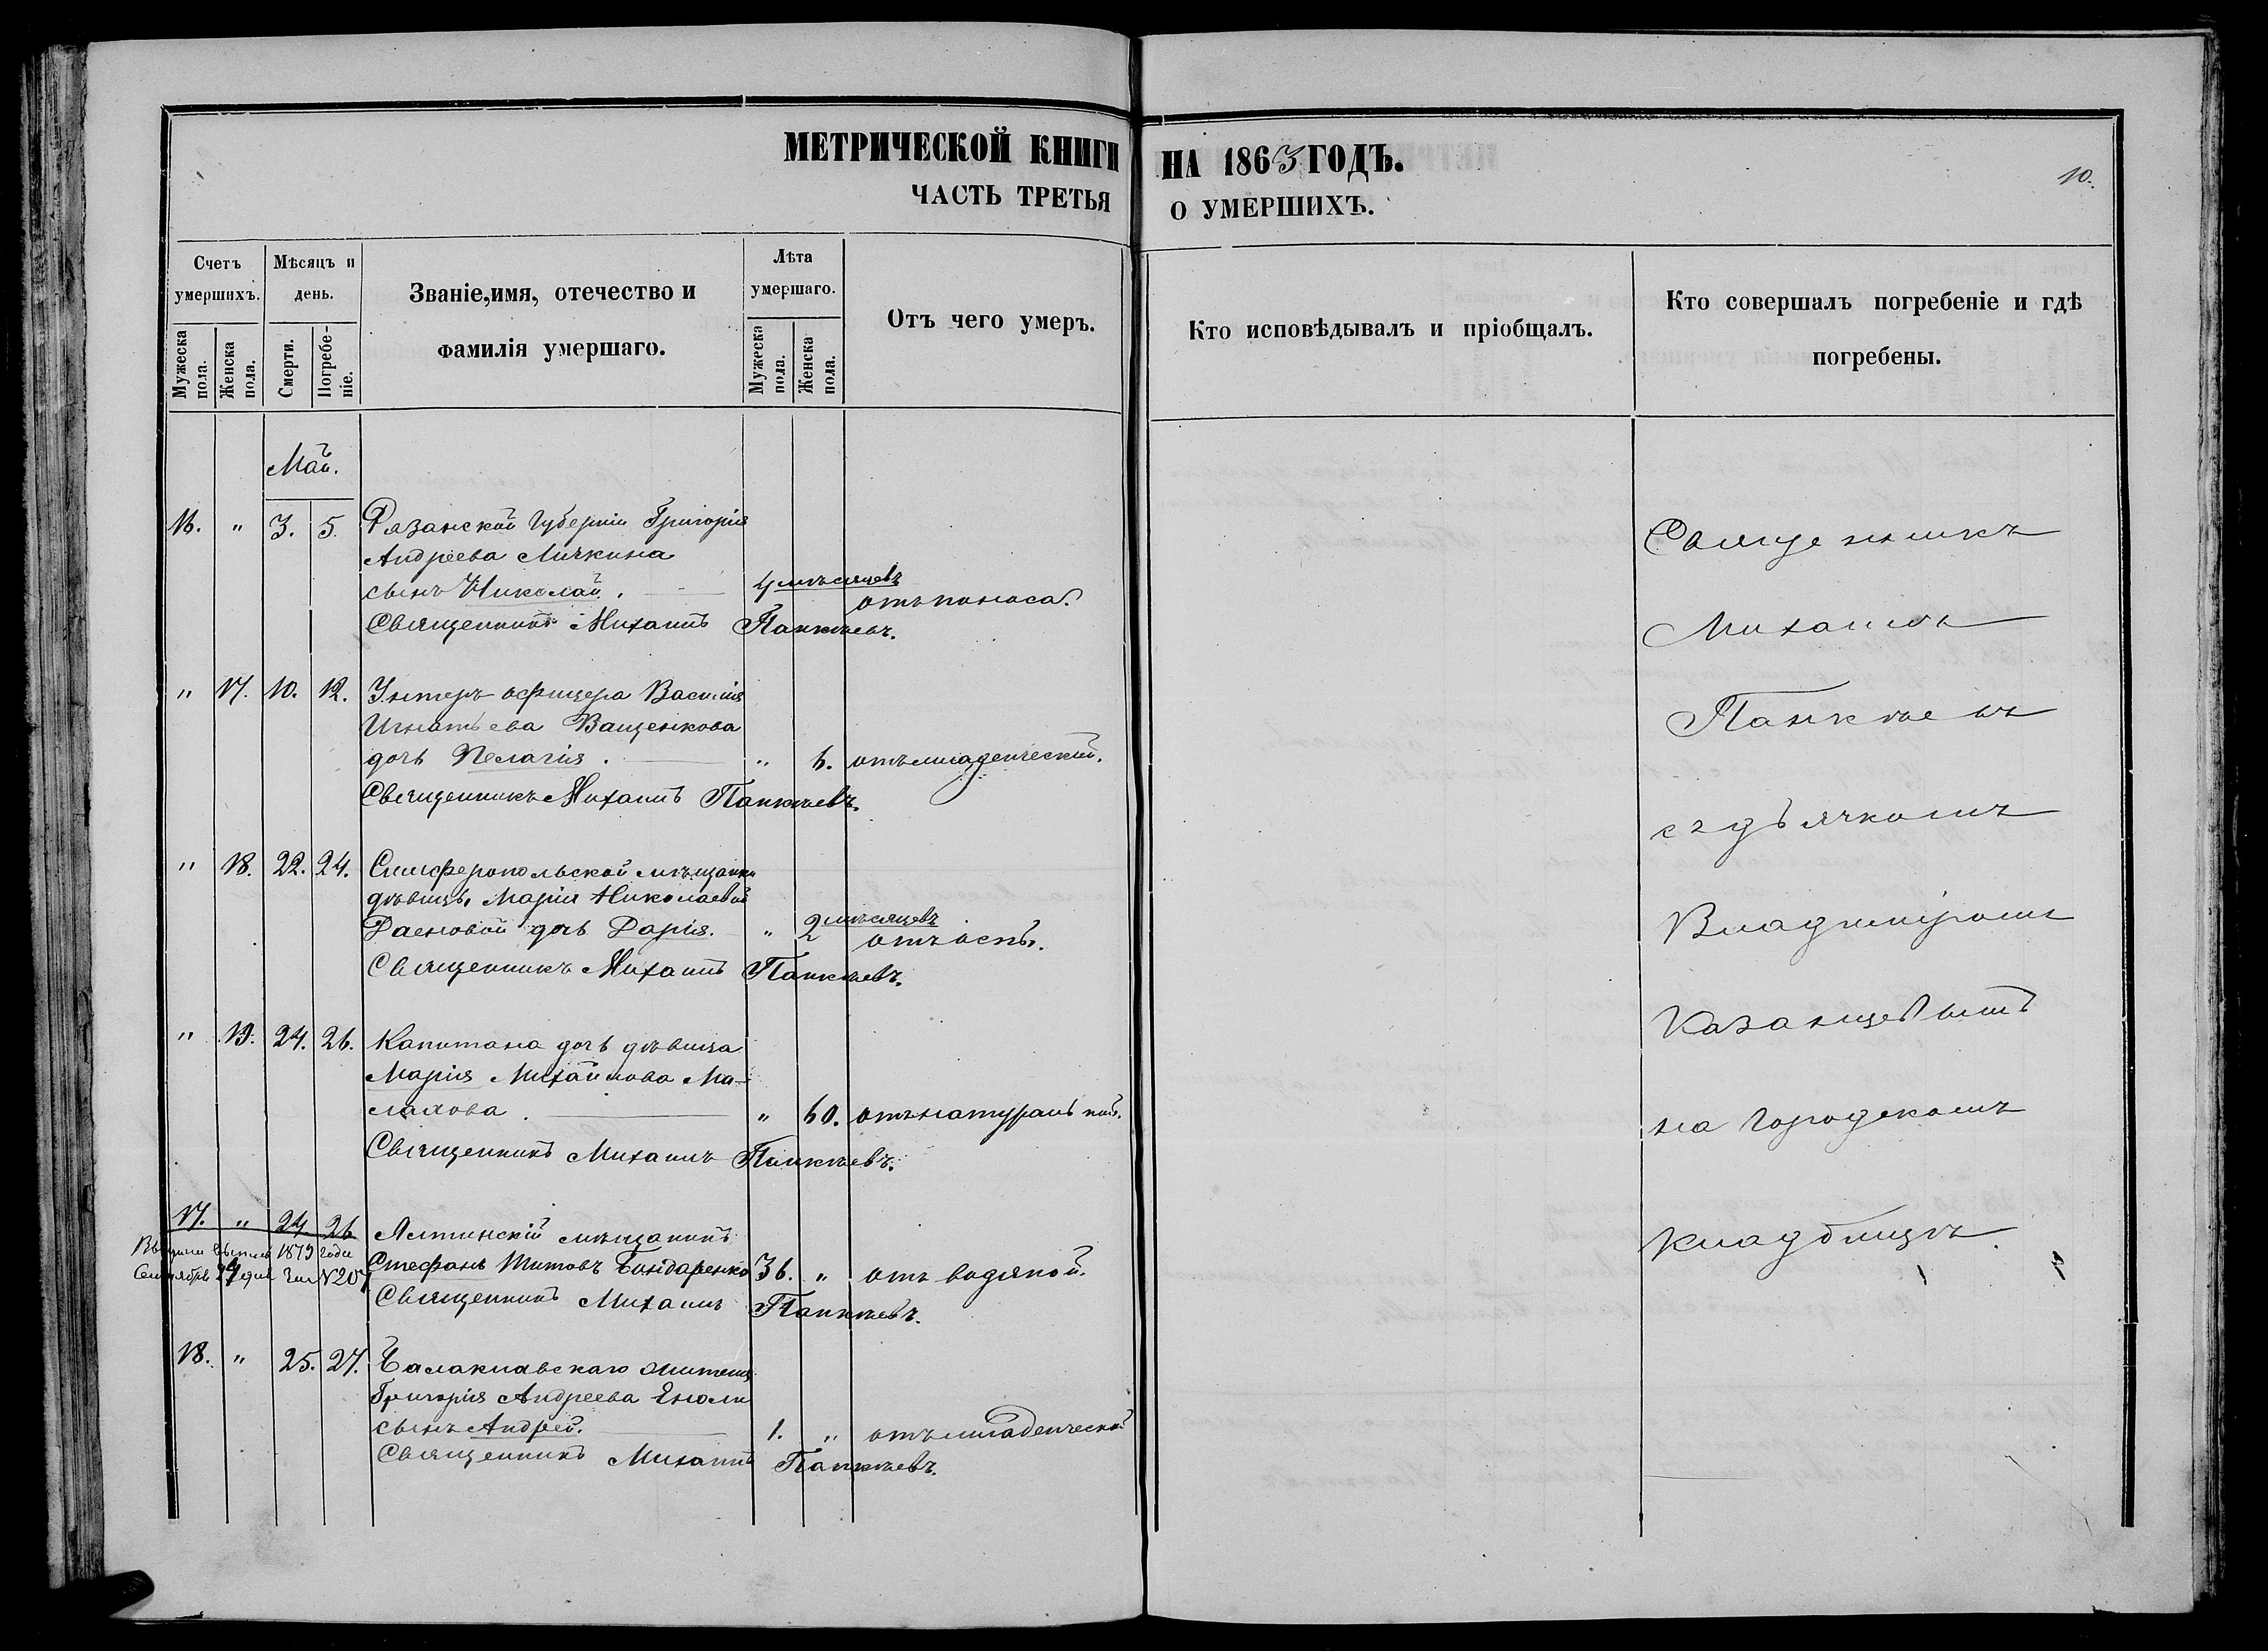 МЕТРИЧЕСКОЙ КНИГИ НА 1863 ГОДЪ.
ЧАСТЬ ТРЕТЬЯ О УМЕРШИХЪ.
10.
Счетъ умершихъ.
Мужеска пола.
Женска пола.
Мѣсяцъ и день.
Смерти.
Погребеніе.
Званіе, имя, отечество и фамилія умершаго.
Лѣта умершаго.
Мужеска пола.
Женска пола.
Отъ чего умеръ.
Кто исповѣдывалъ и пріобщалъ.
Кто совершалъ погребеніе и гдѣ погребены.
Май.
16. " 3. 5. Рязанской Губерніи Григорія
Андреева Личкина
сынъ Николай. 4 мѣсяцевъ отъ поноса.
Священникъ Михаилъ Панкѣевъ.
" 17. 10. 12. Унтеръ офицера Василія
Игнатьева Ващенкова
дочь Пелагія. " 6. отъ младенческой.
Священникъ Михаилъ Панкѣевъ.
" 18. 22. 24. Симферопольской мѣщанки
дѣвицы Маріи Николаевой
дочь Дарія. " 2 мѣсяцевъ отъ оспы.
Священникъ Михаилъ Панкѣевъ.
" 19. 24. 26. Капитана дочь дѣвица
Марія Михайлова Ма-
лахова. " 60. отъ натуральной.
Священникъ Михаилъ Панкѣевъ.
17. " 24. 26. Ялтинскій мѣщанинъ
1879 года
Стефанъ Титовъ Бондаренко 36. " отъ водяной.
Сентября
Священникъ Михаилъ Панкѣевъ.
18. " 25. 27. Балаклавскаго жителя
Григорія Андреева
сынъ Андрей. 1. " отъ младенческой
Священникъ Михаилъ Панкѣевъ.
Священникъ
Михаилъ
Панкѣевъ
съ дьячкомъ
Владиміромъ
Казанцевымъ
на Городскомъ
кладбищѣ.